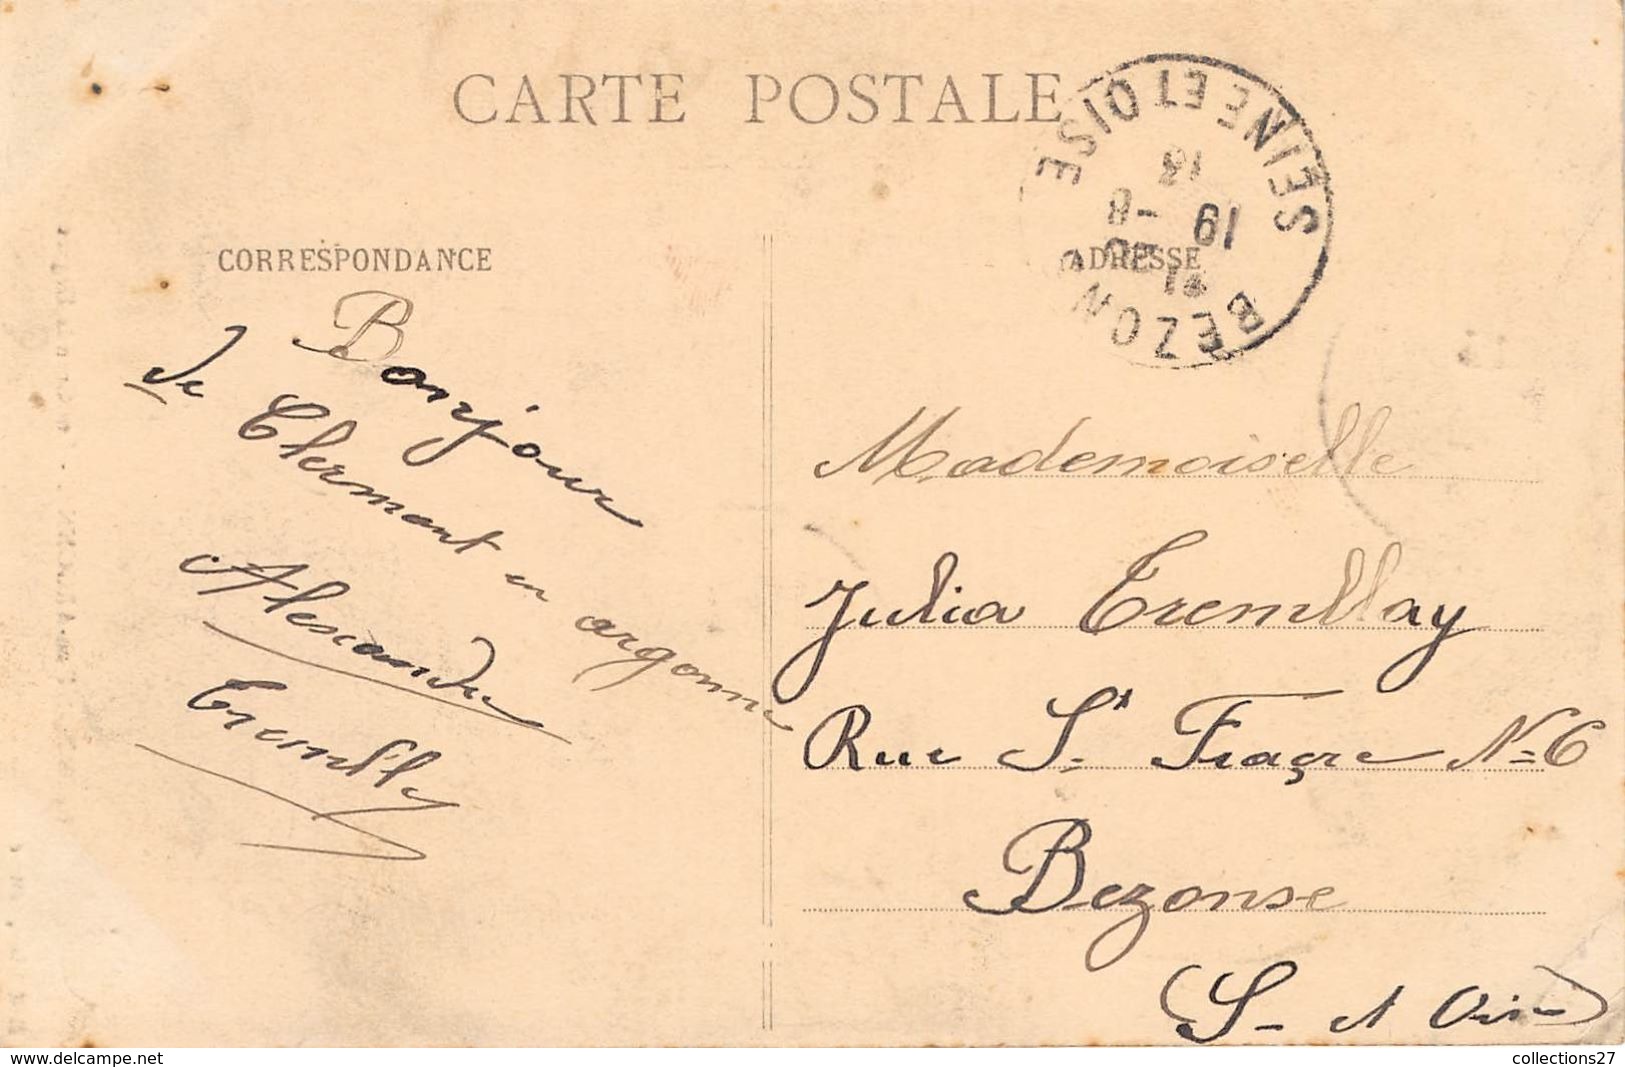 CARTE POSTALE
SEINE ET OISE
18
19 -8
BEZONS
CORRESPONDANCE
ADRESSE
Bonjour
de Clermont en argonne
Alexandre
Tremblay
Mademoiselle
Julia Tremblay
Rue St. Fiaçre No 6
Bezonse
(S- et Oise)
collections27
www.delcampe.net